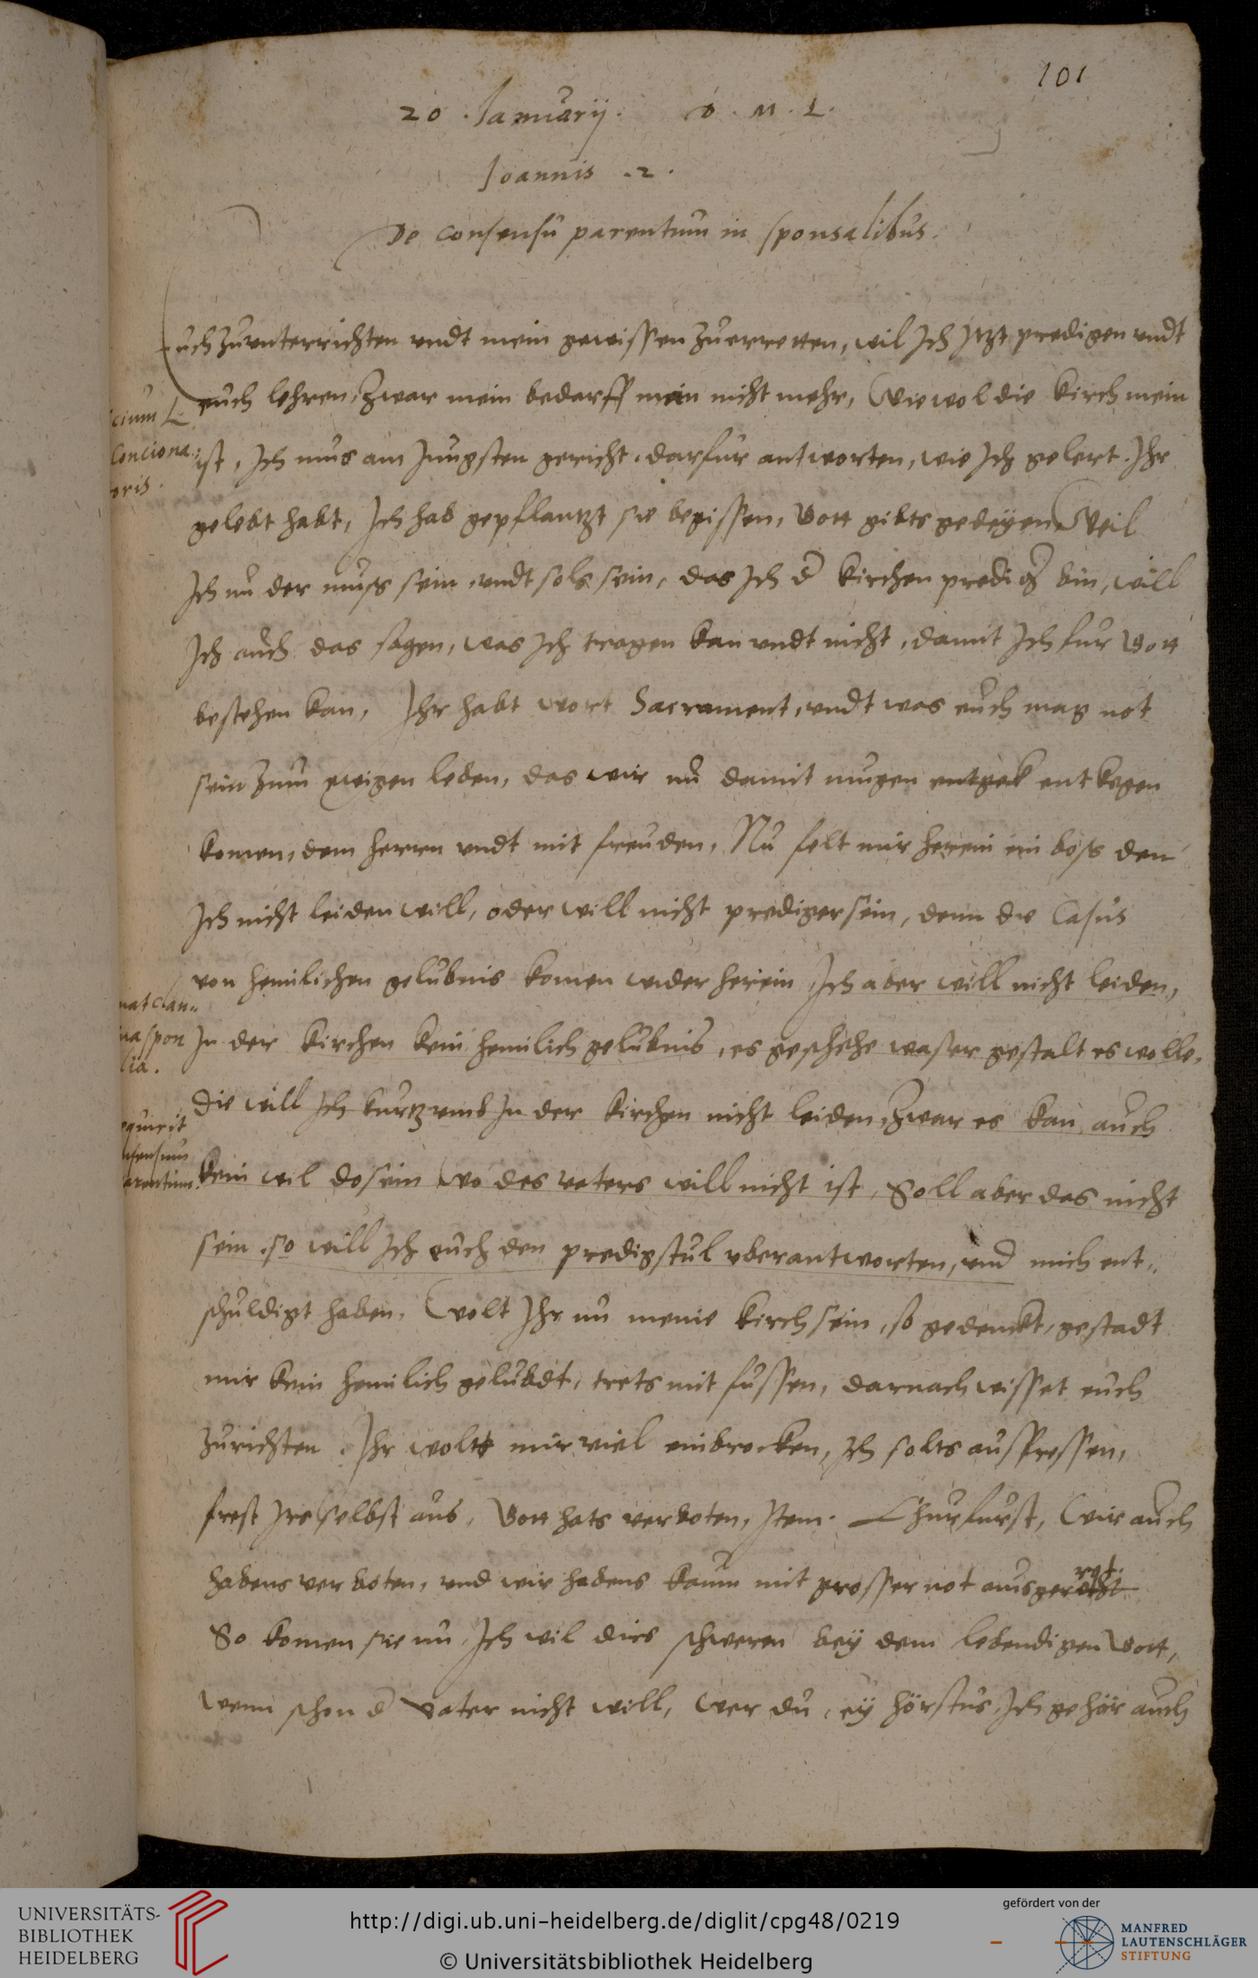 101
20 . Ianuarij . D . M . L .
Ioannis . 2 .
De consensu parentum in sponsalibus .
Euch zu unterrichten undt mein gewissen zu erretten, wil Ich itzt predigen undt
euch lehren, zwar mein bedarff man nicht mehr, Wiewol die kirch mein
ist, Ich mus am Jungsten gericht darfur antworten, wie Ich gelert . Ihr
gelebt habt, Ich hab gepflantzt sie begissen, Gott gibts gedeyen Weil
Ich nu der muß sein undt sols sein, das Ich d kirchen prediger bin, will
Ich auch das sagen, was Ich tragen kan undt nicht, damit Ich fur Gott
bestehen kan, Ihr habt wort Sacrament, undt was euch mag not
sein zum ewigen leben, das wir nu damit mugen entgeck entkegen
komen, dem herren undt mit freuden, Nu felt mir herein ein boß den
Ich nicht leiden will, oder will nicht prediger sein, denn die Casus
von heimlichen gelubnis komen wider herein Ich aber will nicht leiden,
In der kirchen kein heimlich gelubnis, es geschehe waser gestalt es wolle,
die will Ich kurtzumb In der kirchen nicht leiden, zwar es kan auch
kein wil do sein wo des vaters will nicht ist, Soll aber das nicht
sein so will Ich euch den predigstul uberantworten, und mich ent„
schuldigt haben. Wolt Ihr nu meine kirch sein, so gedenckt, gestadt
mir kein heimlich gelubdt, trets mit fussen, darnach wisset euch
zurichten . Ihr wolts mir viel einbrocken, Ich solts ausfressen,
frest Irs selbst aus, Gott hats verboten, Item . Churfurst, Wir auch
habens verboten, und wir habens kaum mit grosser not ausgerot
So komen sie nu, Ich wil dirs schweren bey dem lebendigen Gott,
wenn schon d vater nicht will, wer du, ey hörstus, Ich gehör auch
cium L
Conciona„
oris .
nat clan„
na spon
lia .
equirit
nsensum
arentum
UNIVERSITÄTS-
BIBLIOTHEK
HEIDELBERG
http://digi.ub.uni-heidelberg.de/diglit/cpg48/0219
© Universitätsbibliothek Heidelberg
gefördert von der
MANFRED
LAUTENSCHLÄGER
STIFTUNG